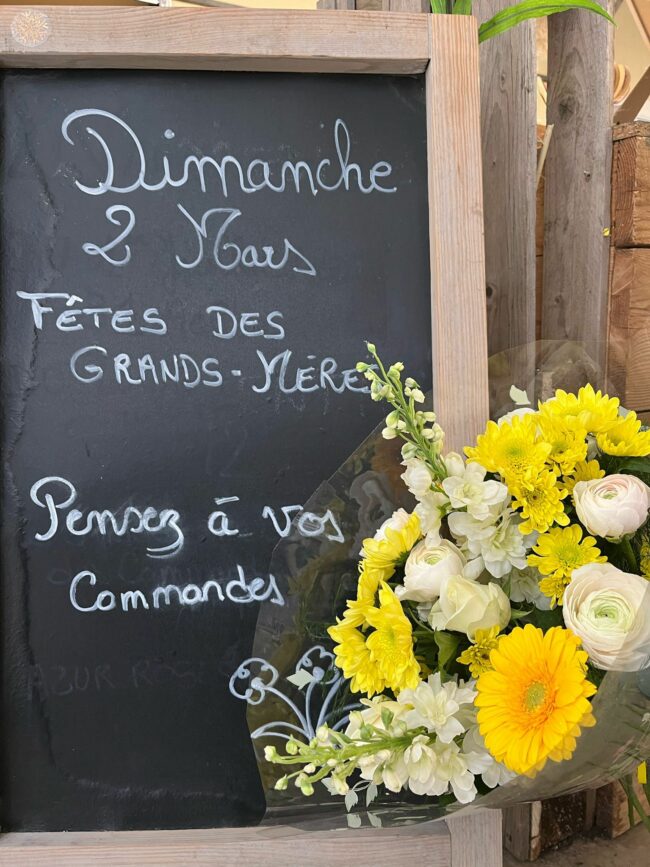 Dimanche
2 Mars
FÊTES DES
GRANDS-MÈRES
Pensez à vos
Commandes